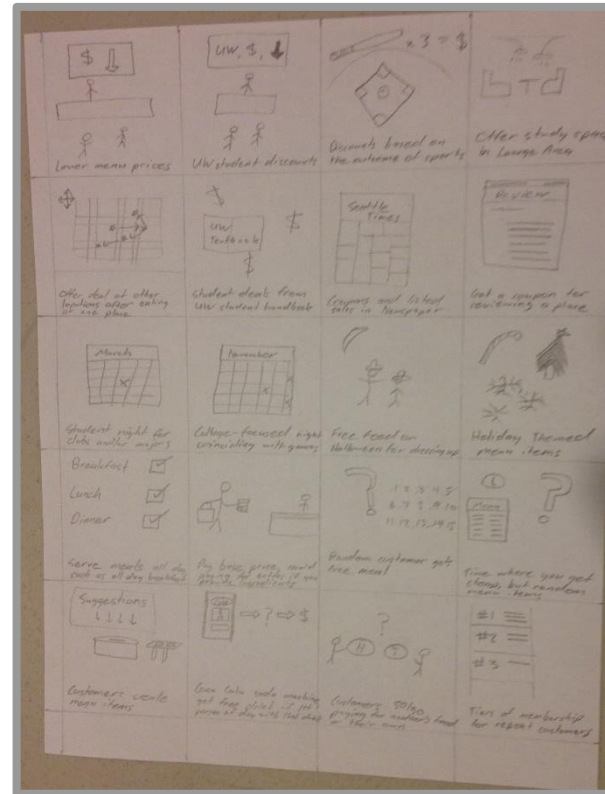 $
Lower menu prices
UW, $,
UW student discounts
x 3 = $
Discounts based on
the outcome of sports
Offer study space
in Lounge Area
Offer deal at other
locations after eating
at one place
$
$
$
UW
Textbook
Student deals from
UW student handbook
Seattle
Times
Coupons and listed
sales in Newspaper
Review
Get a coupon for
reviewing a place
March
x
Student night for
clubs and/or majors
November
x
x
x
College-focused night
coinciding with games
Free food on
Halloween for dressing up
Holiday Themed
menu items
Breakfast
Lunch
Dinner
Serve meals all day
such as all day breakfast
Pay base price, avoid
paying for extras if you
provide ingredients
?
1 2 3 4 5
6 7 8 9 10
11, 12, 13, 14, 15
Random customer gets
free meal
Menu
?
Time where you get
cheap, but random
menu items
Suggestions
Customers create
menu items
? $
Coca Cola soda machine
get free drink if
person of day with that drink
?
Customers 50/50
paying for another's food
or their own
#1
#2
#3
Tiers of membership
for repeat customers